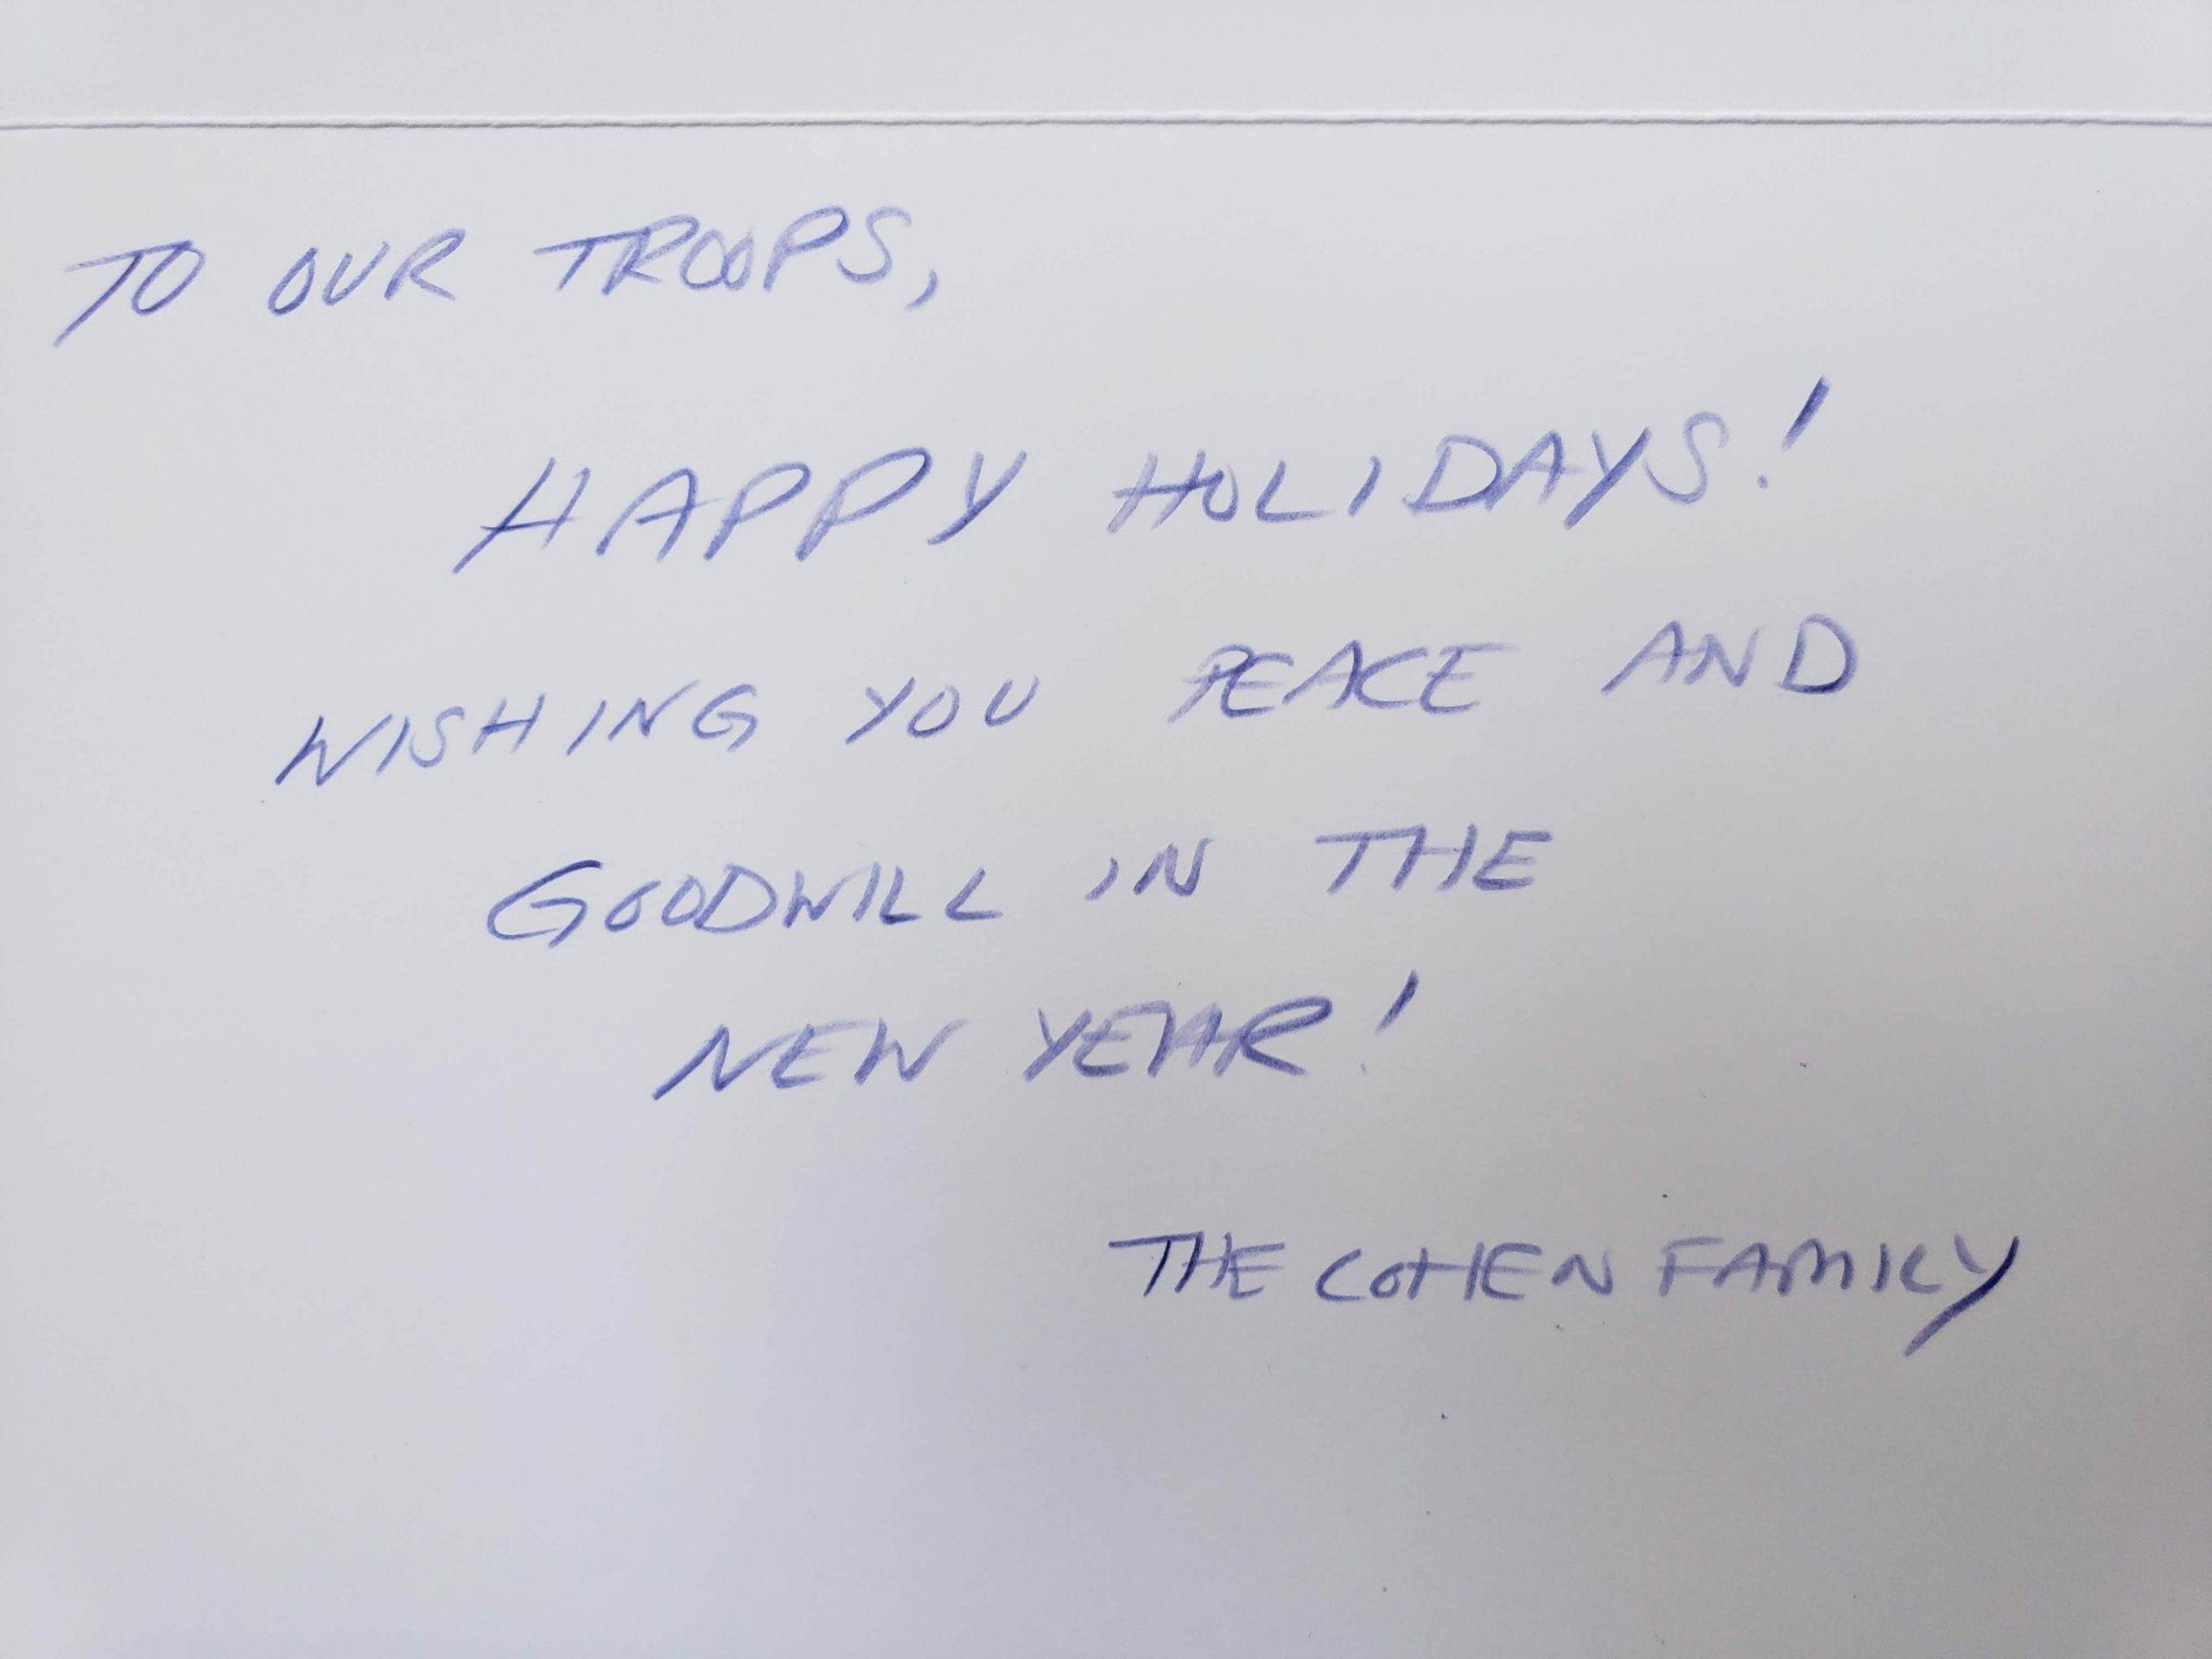 TO OUR TROOPS,
HAPPY HOLIDAYS!
WISHING YOU PEACE AND
GOODWILL IN THE
NEW YEAR!
THE COHEN FAMILY